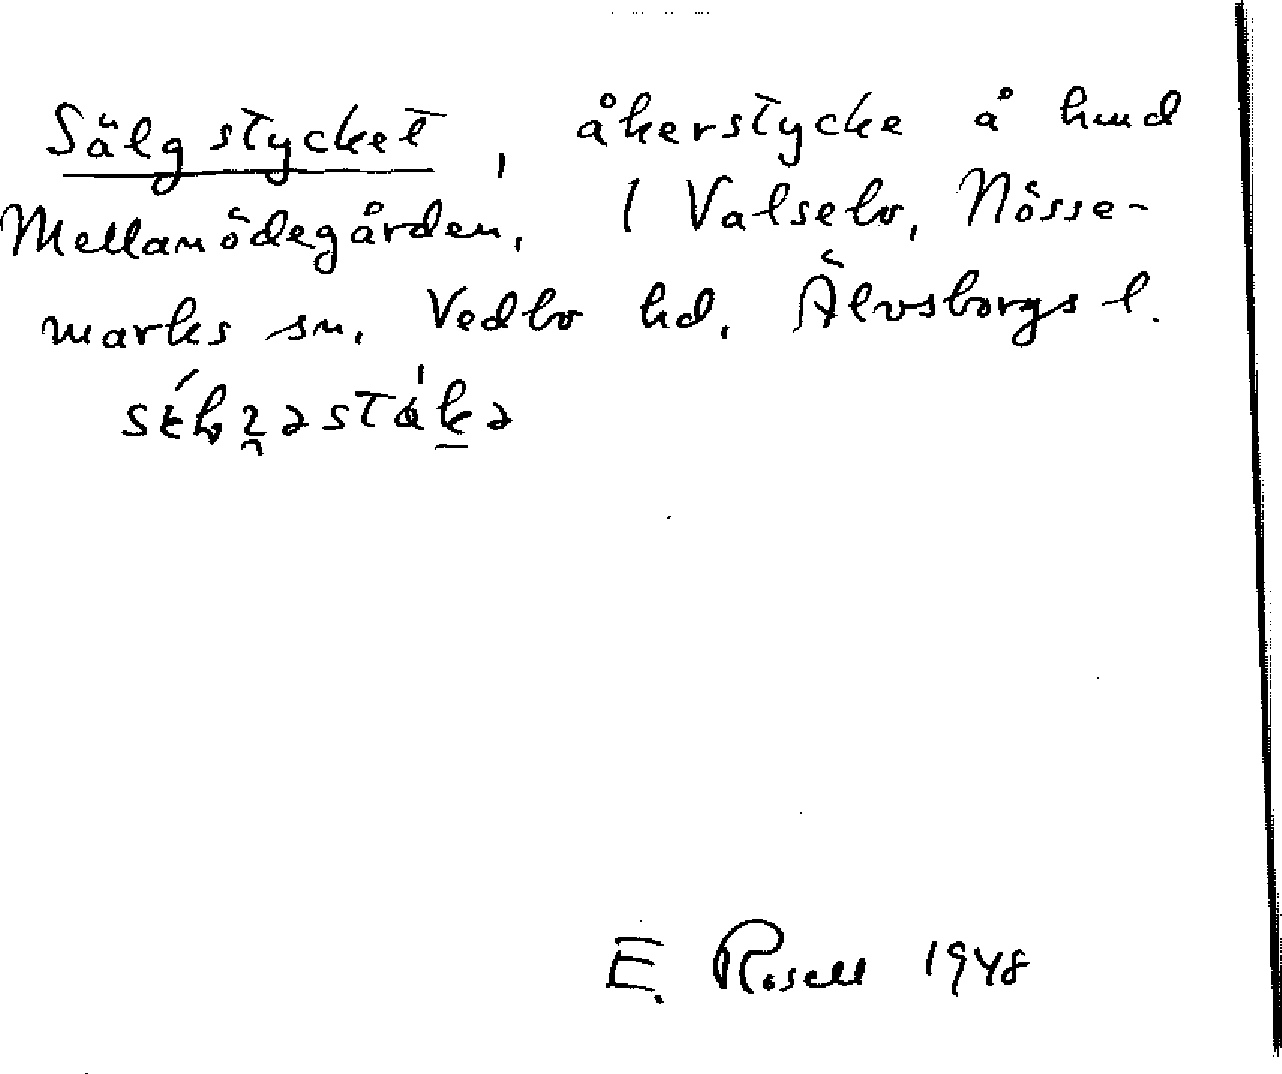 Sälgstycket, åkerstycke å hmd
Mellanödegården, 1 Valsebo, Nösse-
marks sn, Vedbo hd, Älvsborgs l.
E. Rosell 1948